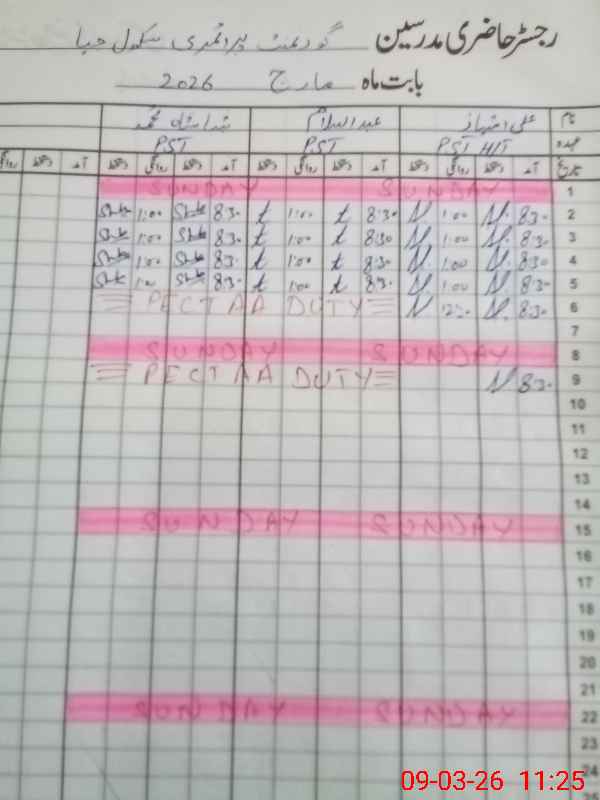 رجسٹر حاضری مدرسین گورنمنٹ پرائمری سکول
بابت ماہ مارچ 2026
نام علی امتیاز عبدالسلام محمد
عہدہ PST H/T PST PST
تاریخ آمد دستخط روانگی دستخط آمد دستخط روانگی دستخط آمد دستخط روانگی دستخط آمد دستخط روانگی
1 SUNDAY SUNDAY
2 8:30 1:00 8:30 1:00 8:30 1:00
3 8:30 1:00 8:30 1:00 8:30 1:00
4 8:30 1:00 8:30 1:00 8:30 1:00
5 8:30 1:00 8:30 1:00 8:30 1:00
6 8:30 PECTAA DUTY
7
8 SUNDAY SUNDAY
9 8:30 PECTAA DUTY
10
11
12
13
14
15 SUNDAY SUNDAY
16
17
18
19
20
21
22 SUNDAY SUNDAY
23
24
25
09-03-26 11:25